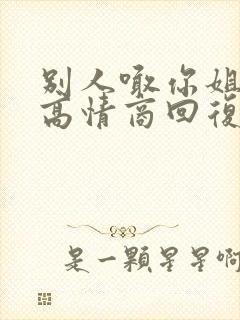 别人噉你姐
高情商回復
是一顆星星啊